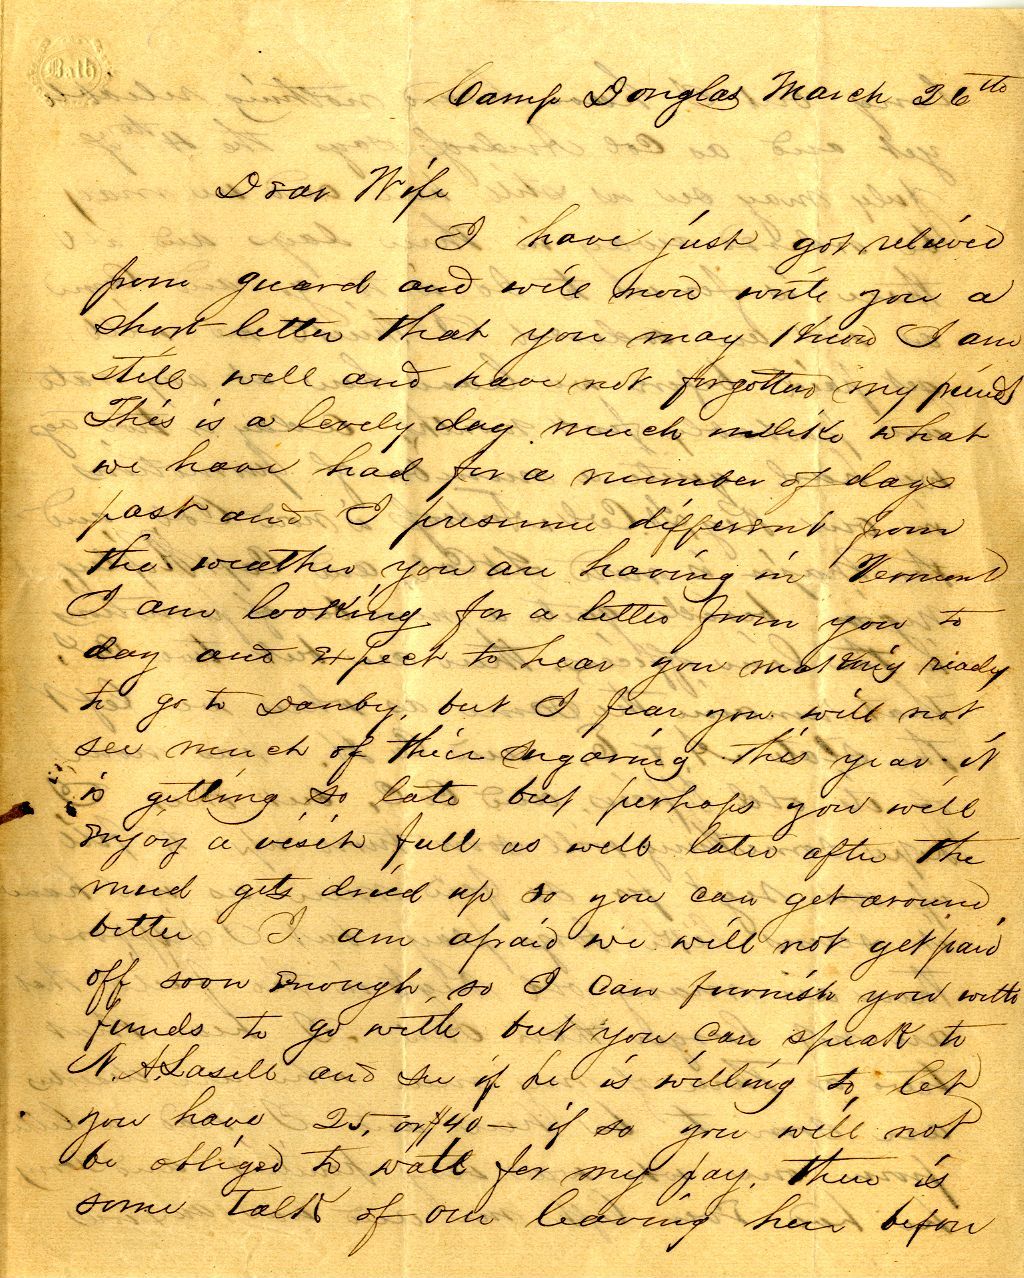 Bath
Camp Douglas March 26th
Dear Wife
I have just got relieved
from guard and will now write you a
short letter that you may know I am
still well and have not forgotten my friends
This is a lovely day much unlike what
we have had for a number of days
past and I presume different from
the weather you are having in Vermont
I am looking for a letter from you to
day and expect to hear you making ready
to go to Danby, but I fear you will not
see much of their sugaring this year it
is getting so late but perhaps you will
enjoy a visit full as well later after the
mud gets dried up so you can get around
better I am afraid we will not get paid
off soon enough, so I can furnish you with
funds to go with but you can speak to
N. A. Lasell and see if he is willing to let
you have 25, or $40 — if so you will not
be obliged to wait for my pay. there is
some talk of our leaving here before